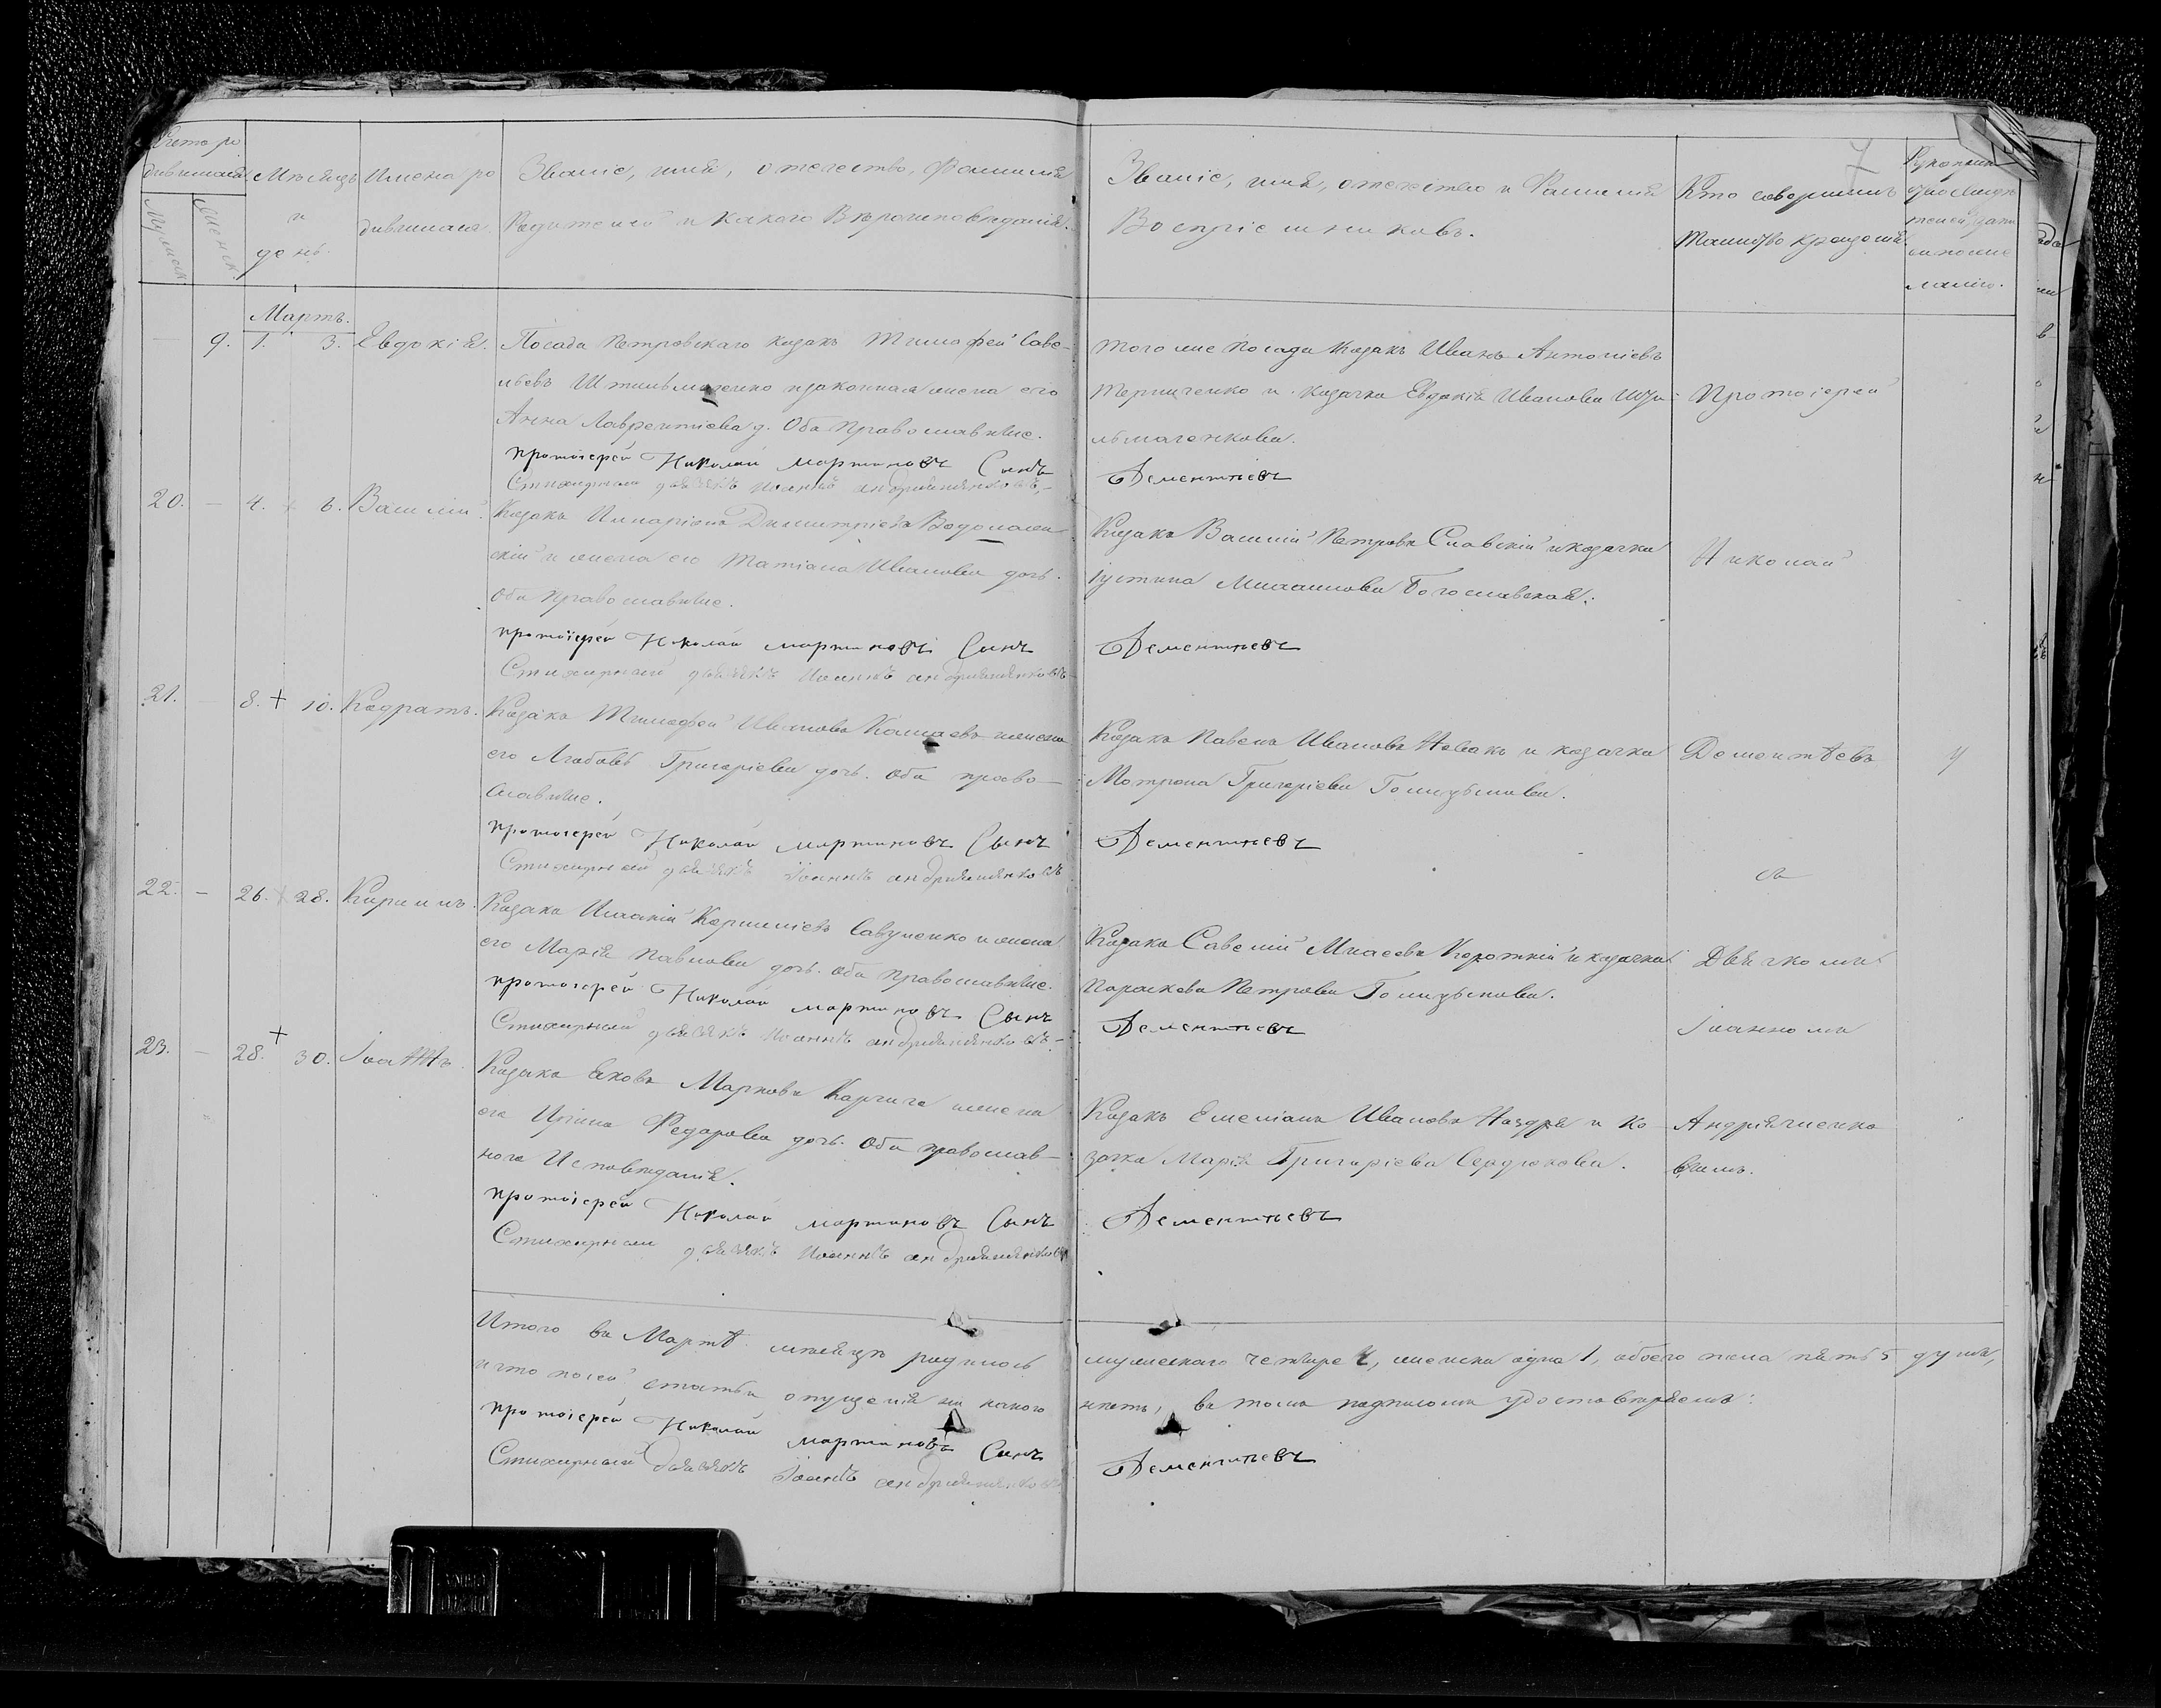 7
Счетъ ро
дившихся.
Мужеск.
Женск.
Мѣсяцъ
и
день.
Имена ро
дившихся.
Званіе, имя, отечество, Фамилия
Родителей и какого Вѣроисповеданія.
Званіе, имя, отечество и Фамилия
Воспріемниковъ.
Кто совершилъ
таинство крещенія.
Мартъ.
9. 1. 3. Евдокія.
Посада Петровскаго казакъ Тимофей Саве-
льевъ и законная жена его
Анна Лаврентіева д. Оба православные.
протоіерей Николай мартиновъ Сынъ
Стихарный дьячокъ Иоаннъ андріяшенковъ
того же Посада Казакъ Иванъ Антоніевъ
Терниченко и казачка Евдокія Иванова
Дементьевъ
Протоіерей
20. — 4. + 6. Василій.
Казакъ Иларіонъ Димитріевъ Водолаж-
скій и жена его Татіана Иванова дочь.
Оба православные.
протоіерей Николай мартиновъ Сынъ
Стихарный дьячокъ Иоаннъ андріяшенковъ
Казакъ Василій Петровъ Славскій и казачка
Іустина Михаилова Богославская.
Дементьевъ
Николай
21. — 8. + 10. Кодратъ.
Казакъ Тимофей Ивановъ и жена
его Любовь Григоріева дочь. Оба право-
славные.
протоіерей Николай мартиновъ Сынъ
Стихарный дьячокъ Іоаннъ андріяшенковъ
Казакъ Павелъ Ивановъ Новакъ и казачка
Мотрона Григоріева Голицынова.
Дементьевъ
Дементѣевъ
съ
22. — 26. + 28. Кирилъ.
Казакъ Савченко и жена
его Марія Павлова дочь. Оба православные.
протоіерей Николай мартиновъ Сынъ
Стихарный дьячокъ Иоаннъ андріяшенковъ
Казакъ Савелій Короткій и казачка
Параскева Петрова Голицынова.
Дементьевъ
Дьячкомъ
Іоанномъ
23. — 28. + 30. Іоаннъ.
Казакъ Яковъ Марковъ и жена
его Ирина Федорова дочь. Оба православ-
ного Исповѣданія.
протоіерей Николай мартиновъ Сынъ
Стихарный дьячокъ Иоаннъ андріяшенковъ
Казакъ Емеліанъ Ивановъ Наздря и ка-
зачка Марія Григоріева Сердюкова.
Дементьевъ
Андріяшенко
вымъ.
Итого въ Мартѣ мѣсяцѣ родилось
мужескаго четыре 4, женска одна 1, обоего пола пять 5 душъ,
и что по сей статьи опущенія ни какого
нѣтъ, въ томъ подписомъ удостовѣряемъ:
протоіерей Николай мартиновъ Сынъ
Дементьевъ
Стихарный дьячокъ Іоаннъ андріяшенковъ